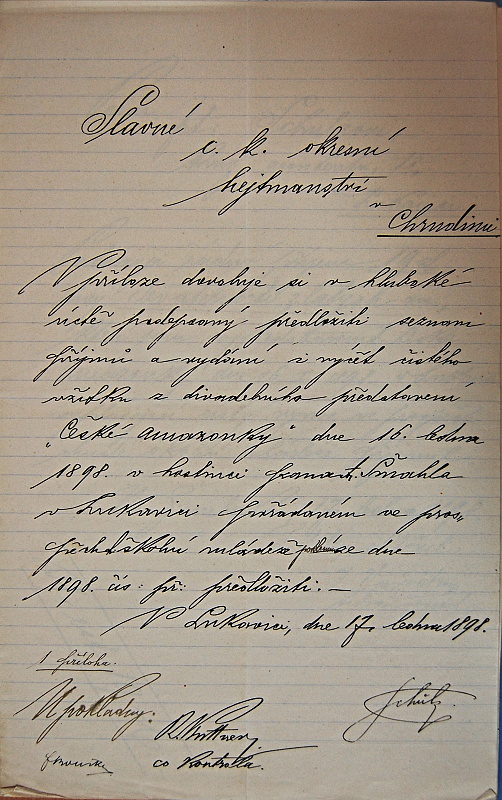 Slavné
c. k. okresní
hejtmanství
v
Chrudimi
V příloze dovoluje si v hluboké
úctě podepsaný předložiti seznam
příjmů a vydání i výčet čistého
výtěžku z divadelního představení
„České amazonky" dne 16. ledna
1898. v hostinci pana Šmahla
v Lukavici pořádaném ve pros„
pěch školní mládeže ze dne
1898. čís: př: předložiti. –
V Lukavici, dne 17. ledna 1898.
1 příloha.
U pokladny:
co kontrolla.